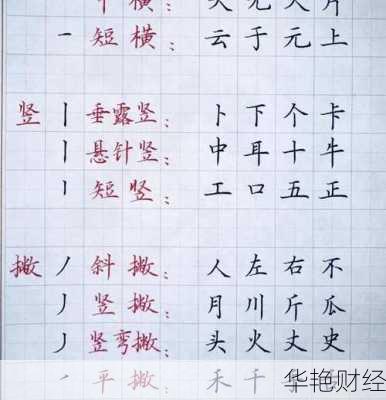 横：
短横：云于元上
竖 垂露竖：卜下个卡
悬针竖：中耳十牛
短竖：工口五正
撇 斜撇：人左右不
竖撇：月川斤瓜
竖弯撇：头火丈史
平撇：禾千
华艳财经